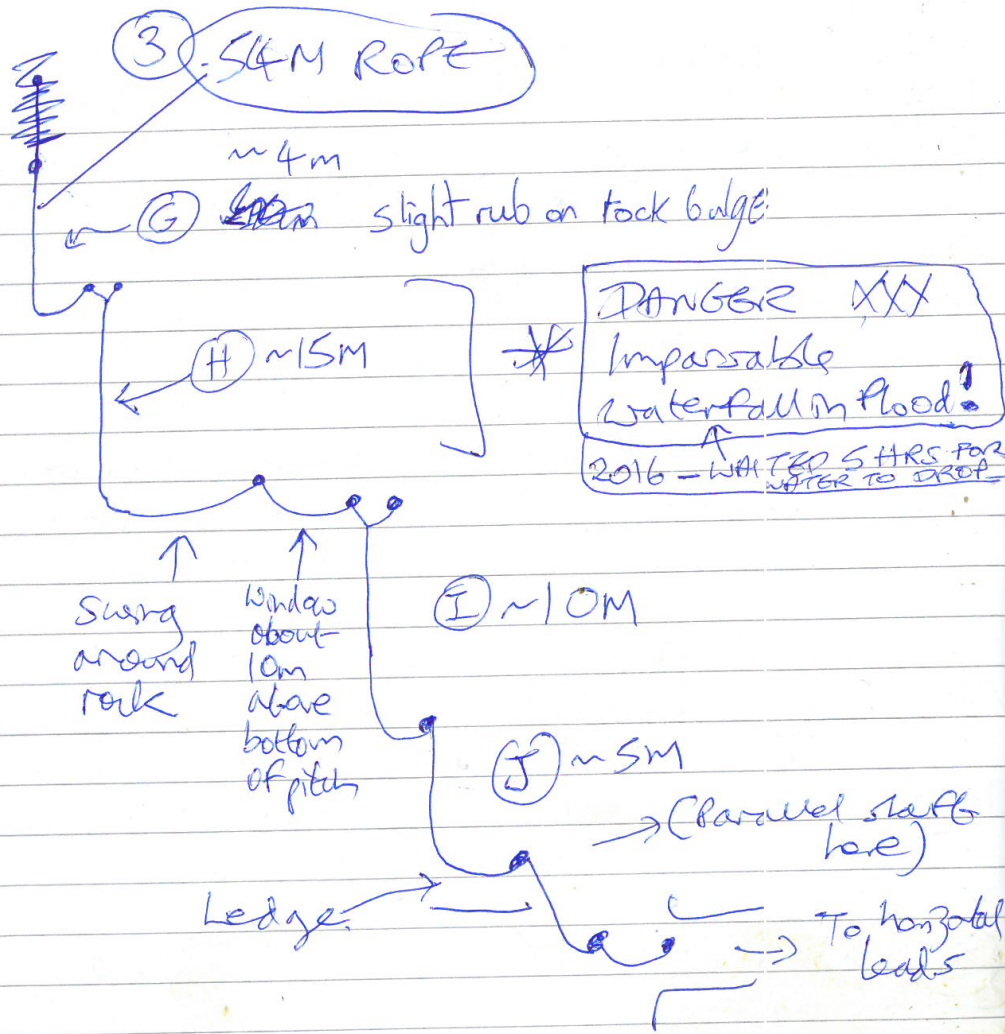 3 54M ROPE
~4m
G slight rub on rock bulge.
H ~15M
DANGER XXX
Impassable
waterfall in flood!
2016 - WAITED 5 HRS FOR
WATER TO DROP
Swing
around
rock
Window
about
10m
above
bottom
of pitch
I ~10M
J ~5M
(Parallel shaft
here)
Ledge
To horizontal
leads